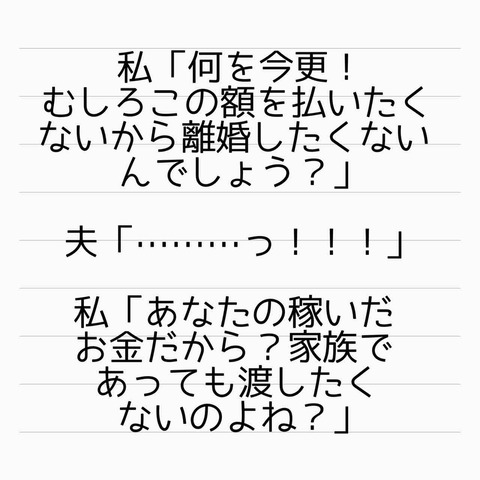 私「何を今更！
むしろこの額を払いたく
ないから離婚したくない
んでしょう？」
夫「………っ！！！」
私「あなたの稼いだ
お金だから？家族で
あっても渡したく
ないのよね？」